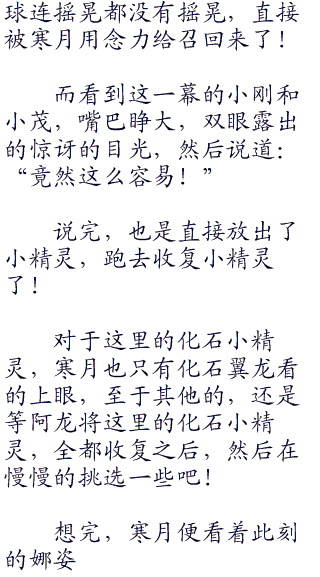 球连摇晃都没有摇晃，直接
被寒月用念力给召回来了！
而看到这一幕的小刚和
小茂，嘴巴睁大，双眼露出
的惊讶的目光，然后说道：
“竟然这么容易！”
说完，也是直接放出了
小精灵，跑去收复小精灵
了！
对于这里的化石小精
灵，寒月也只有化石翼龙看
的上眼，至于其他的，还是
等阿龙将这里的化石小精
灵，全都收复之后，然后在
慢慢的挑选一些吧！
想完，寒月便看着此刻
的娜姿